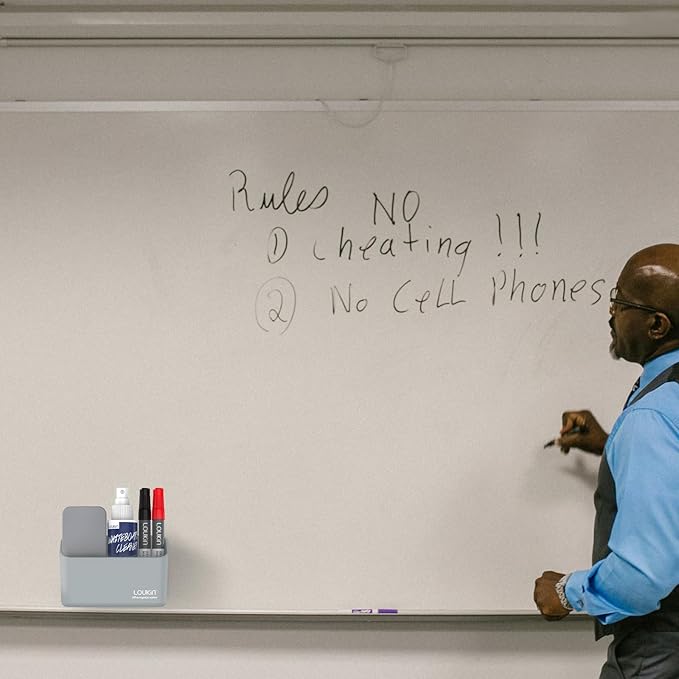 Rules NO
① cheating !!!
② No Cell Phones
WHITEBOARD
CLEANER
LOUKIN
LOUKIN
LOUKIN